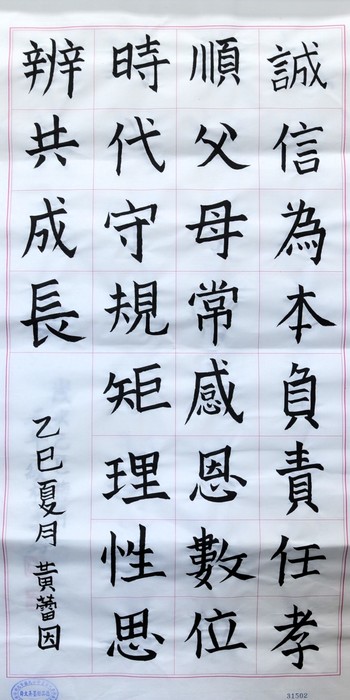 誠信為本負責任孝
順父母常感恩數位
時代守規矩理性思
辨共成長
乙巳夏月 黃蕾因
31502